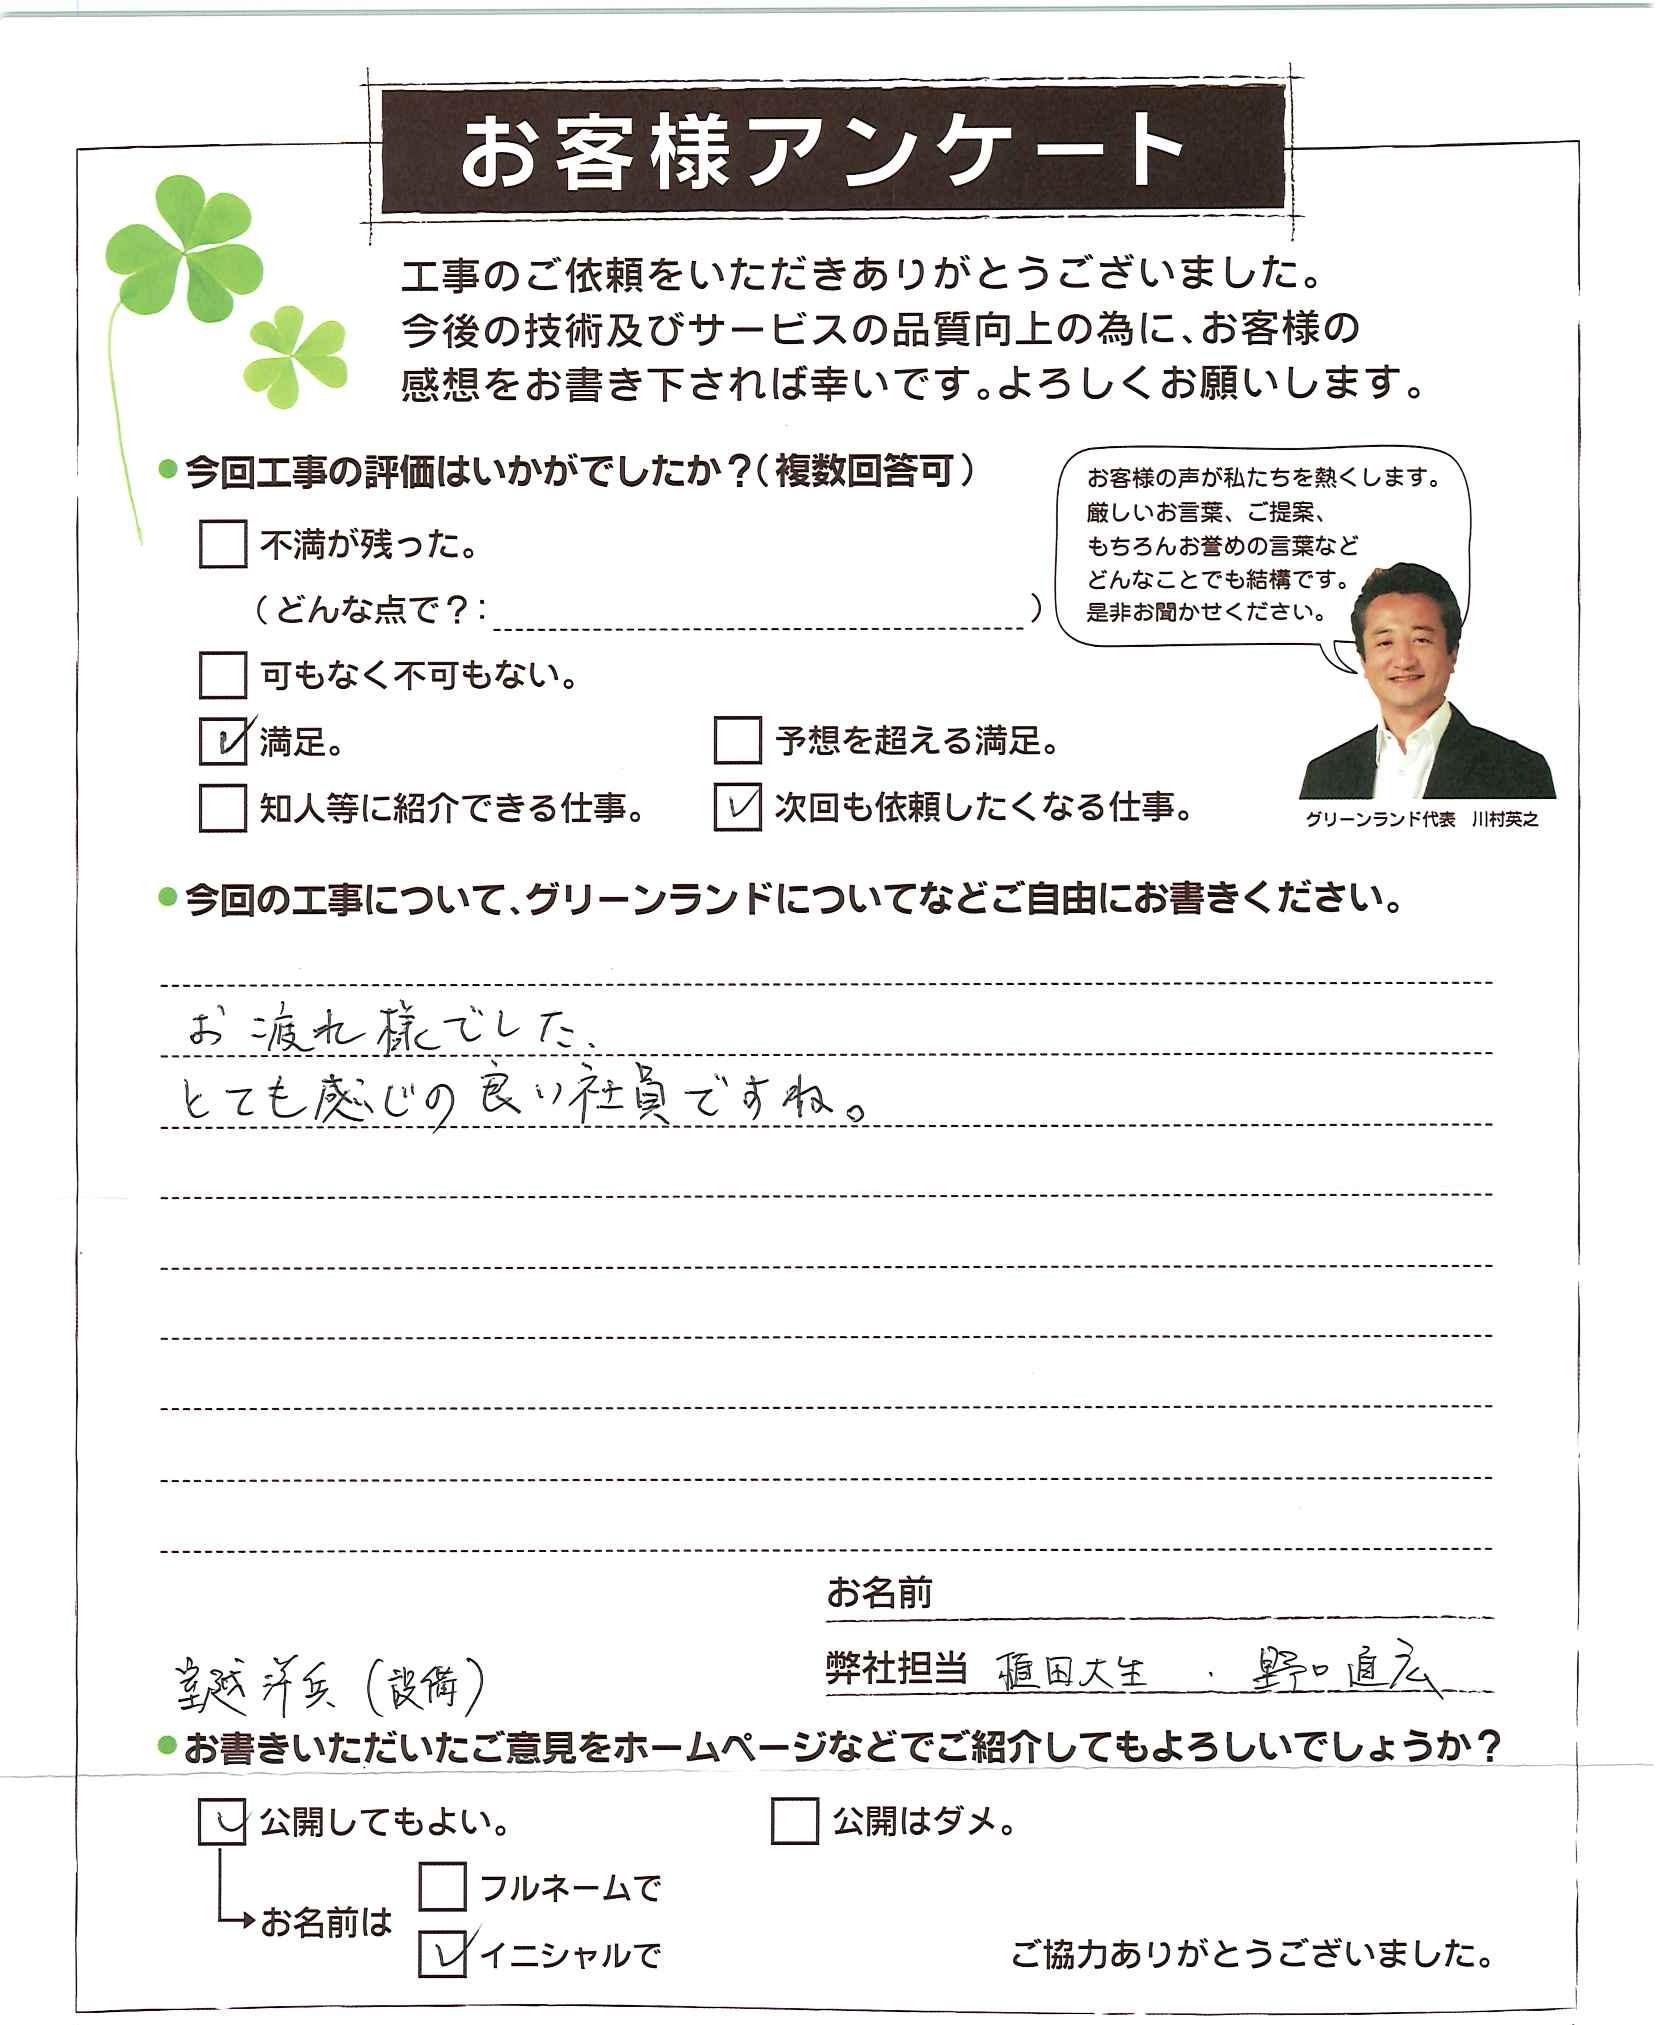 お客様アンケート
工事のご依頼をいただきありがとうございました。
今後の技術及びサービスの品質向上の為に、お客様の
感想をお書き下されば幸いです。よろしくお願いします。
●今回工事の評価はいかがでしたか？（複数回答可）
不満が残った。
（どんな点で？：）
可もなく不可もない。
満足。
予想を超える満足。
知人等に紹介できる仕事。
次回も依頼したくなる仕事。
お客様の声が私たちを熱くします。
厳しいお言葉、ご提案、
もちろんお誉めの言葉など
どんなことでも結構です。
是非お聞かせください。
グリーンランド代表 川村英之
●今回の工事について、グリーンランドについてなどご自由にお書きください。
お疲れ様でした、
とても感じの良い社員ですね。
お名前
弊社担当 植田大生 ・ 野口直広
室越洋兵（設備）
●お書きいただいたご意見をホームページなどでご紹介してもよろしいでしょうか？
公開してもよい。
公開はダメ。
お名前は
フルネームで
イニシャルで
ご協力ありがとうございました。